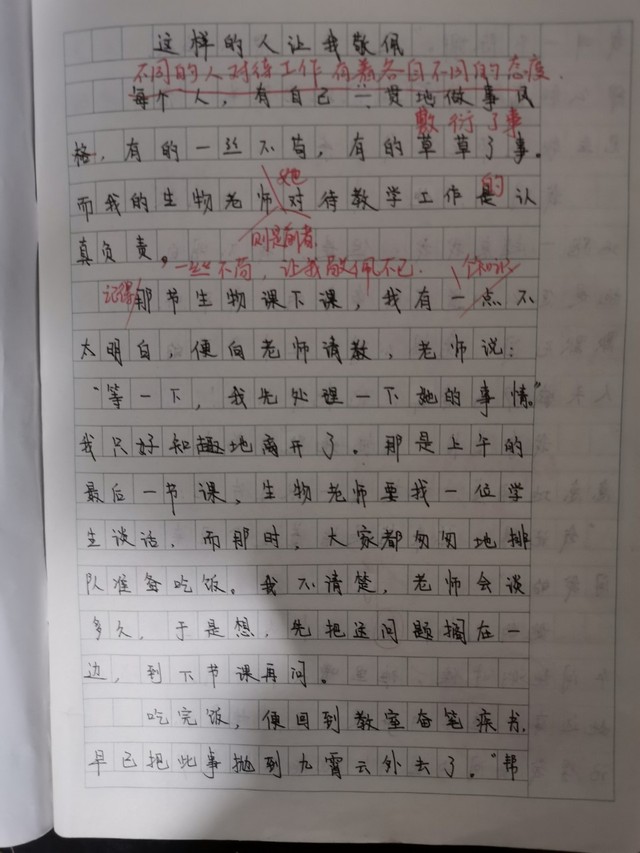 这样的人让我敬佩
不同的人对待工作有着各自不同的态度.
每个人，有自己一贯地做事风
敷衍了事
格，有的一丝不苟，有的草草了事。
她
的
而我的生物老师对待教学工作是认
则是前者
真负责。
一丝不苟，让我敬佩不已.
记得
个知识
那节生物课下课，我有一点不
太明白，便向老师请教，老师说：
“等一下，我先处理一下她的事情。”
我只好知趣地离开了。那是上午的
最后一节课，生物老师要找一位学
生谈话，而那时，大家都匆匆地排
队准备吃饭。我不清楚，老师会谈
多久，于是想，先把这问题搁在一
边，到下节课再问。
吃完饭，便回到教室奋笔疾书，
早已把此事抛到九霄云外去了。“帮